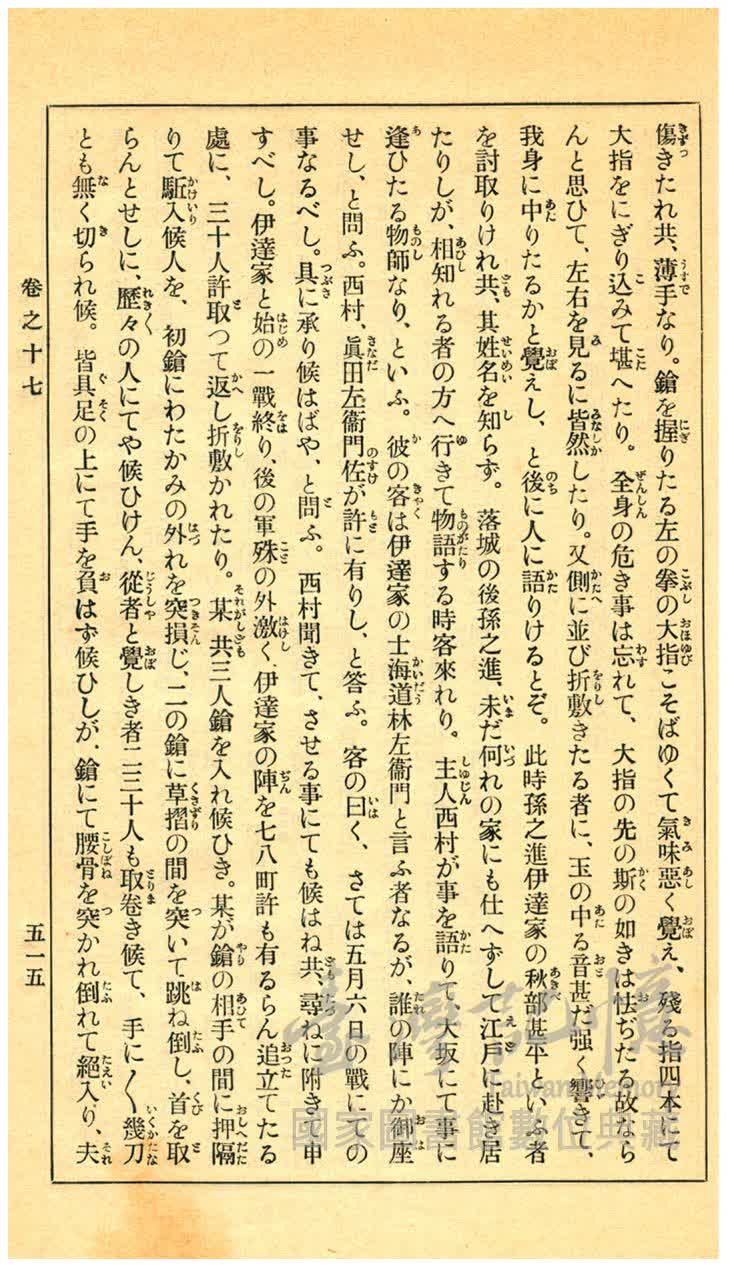 傷きたれ共、薄手なり。鎗を握りたる左の拳の大指こそばゆくて氣味惡く覺え、殘る指四本にて
大指をにぎり込みて堪へたり。全身の危き事は忘れて、大指の先の斯の如きは怯ぢたる故なら
んと思ひて、左右を見るに皆然したり。又側に並び折敷きたる者に、玉の中る音甚だ強く響きて、
我身に中りたるかと覺えし、と後に人に語りけるとぞ。此時孫之進伊達家の秋部甚平といふ者
を討取りけれ共、其姓名を知らず。落城の後孫之進、未だ何れの家にも仕へずして江戸に赴き居
たりしが、相知れる者の方へ行きて物語する時客來れり。主人西村が事を語りて、大坂にて事に
逢ひたる物師なり、といふ。彼の客は伊達家の士海道林左衞門と言ふ者なるが、誰の陣にか御座
せし、と問ふ。西村、眞田左衞門佐が許に有りし、と答ふ。客の曰く、さては五月六日の戰にての
事なるべし。具に承り候はばや、と問ふ。西村聞きて、させる事にても候はね共、尋ねに附きて申
すべし。伊達家と始の一戰終り、後の軍殊の外激く、伊達家の陣を七八町許も有るらん追立てたる
處に、三十人許取つて返し折敷かれたり。某共三人鎗を入れ候ひき。某が鎗の相手の間に押隔
りて駈入候人を、初鎗にわたかみの外れを突損じ、二の鎗に草摺の間を突いて跳ね倒し、首を取
らんとせしに、歷々の人にてや候ひけん、從者と覺しき者二三十人も取卷き候て、手に〱幾刀
とも無く切られ候。皆具足の上にて手を負はず候ひしが、鎗にて腰骨を突かれ倒れて絕入り、夫
卷之十七
五一五
臺灣記憶
Taiwan Memory
國家圖書館數位典藏